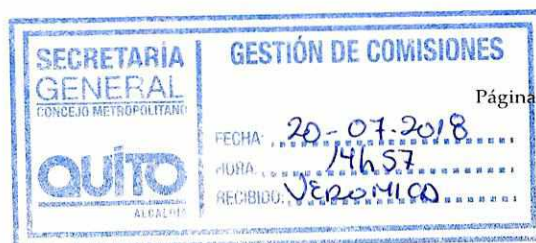 SECRETARÍA
GENERAL
CONCEJO METROPOLITANO
QUITO
ALCALDÍA
GESTIÓN DE COMISIONES
Página
FECHA: 20-07-2018
HORA: 14h57
RECIBIDO: VERONICA